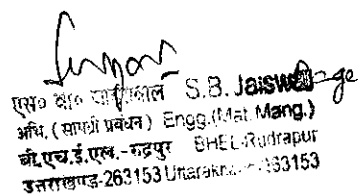 एस० बी० जायसवाल S.B. Jaiswal
अभि. (सामग्री प्रबंधन) Engg.(Mat. Mang.)
बी.एच.ई.एल.-रुद्रपुर BHEL-Rudrapur
उत्तराखण्ड-263153 Uttarakhand-263153